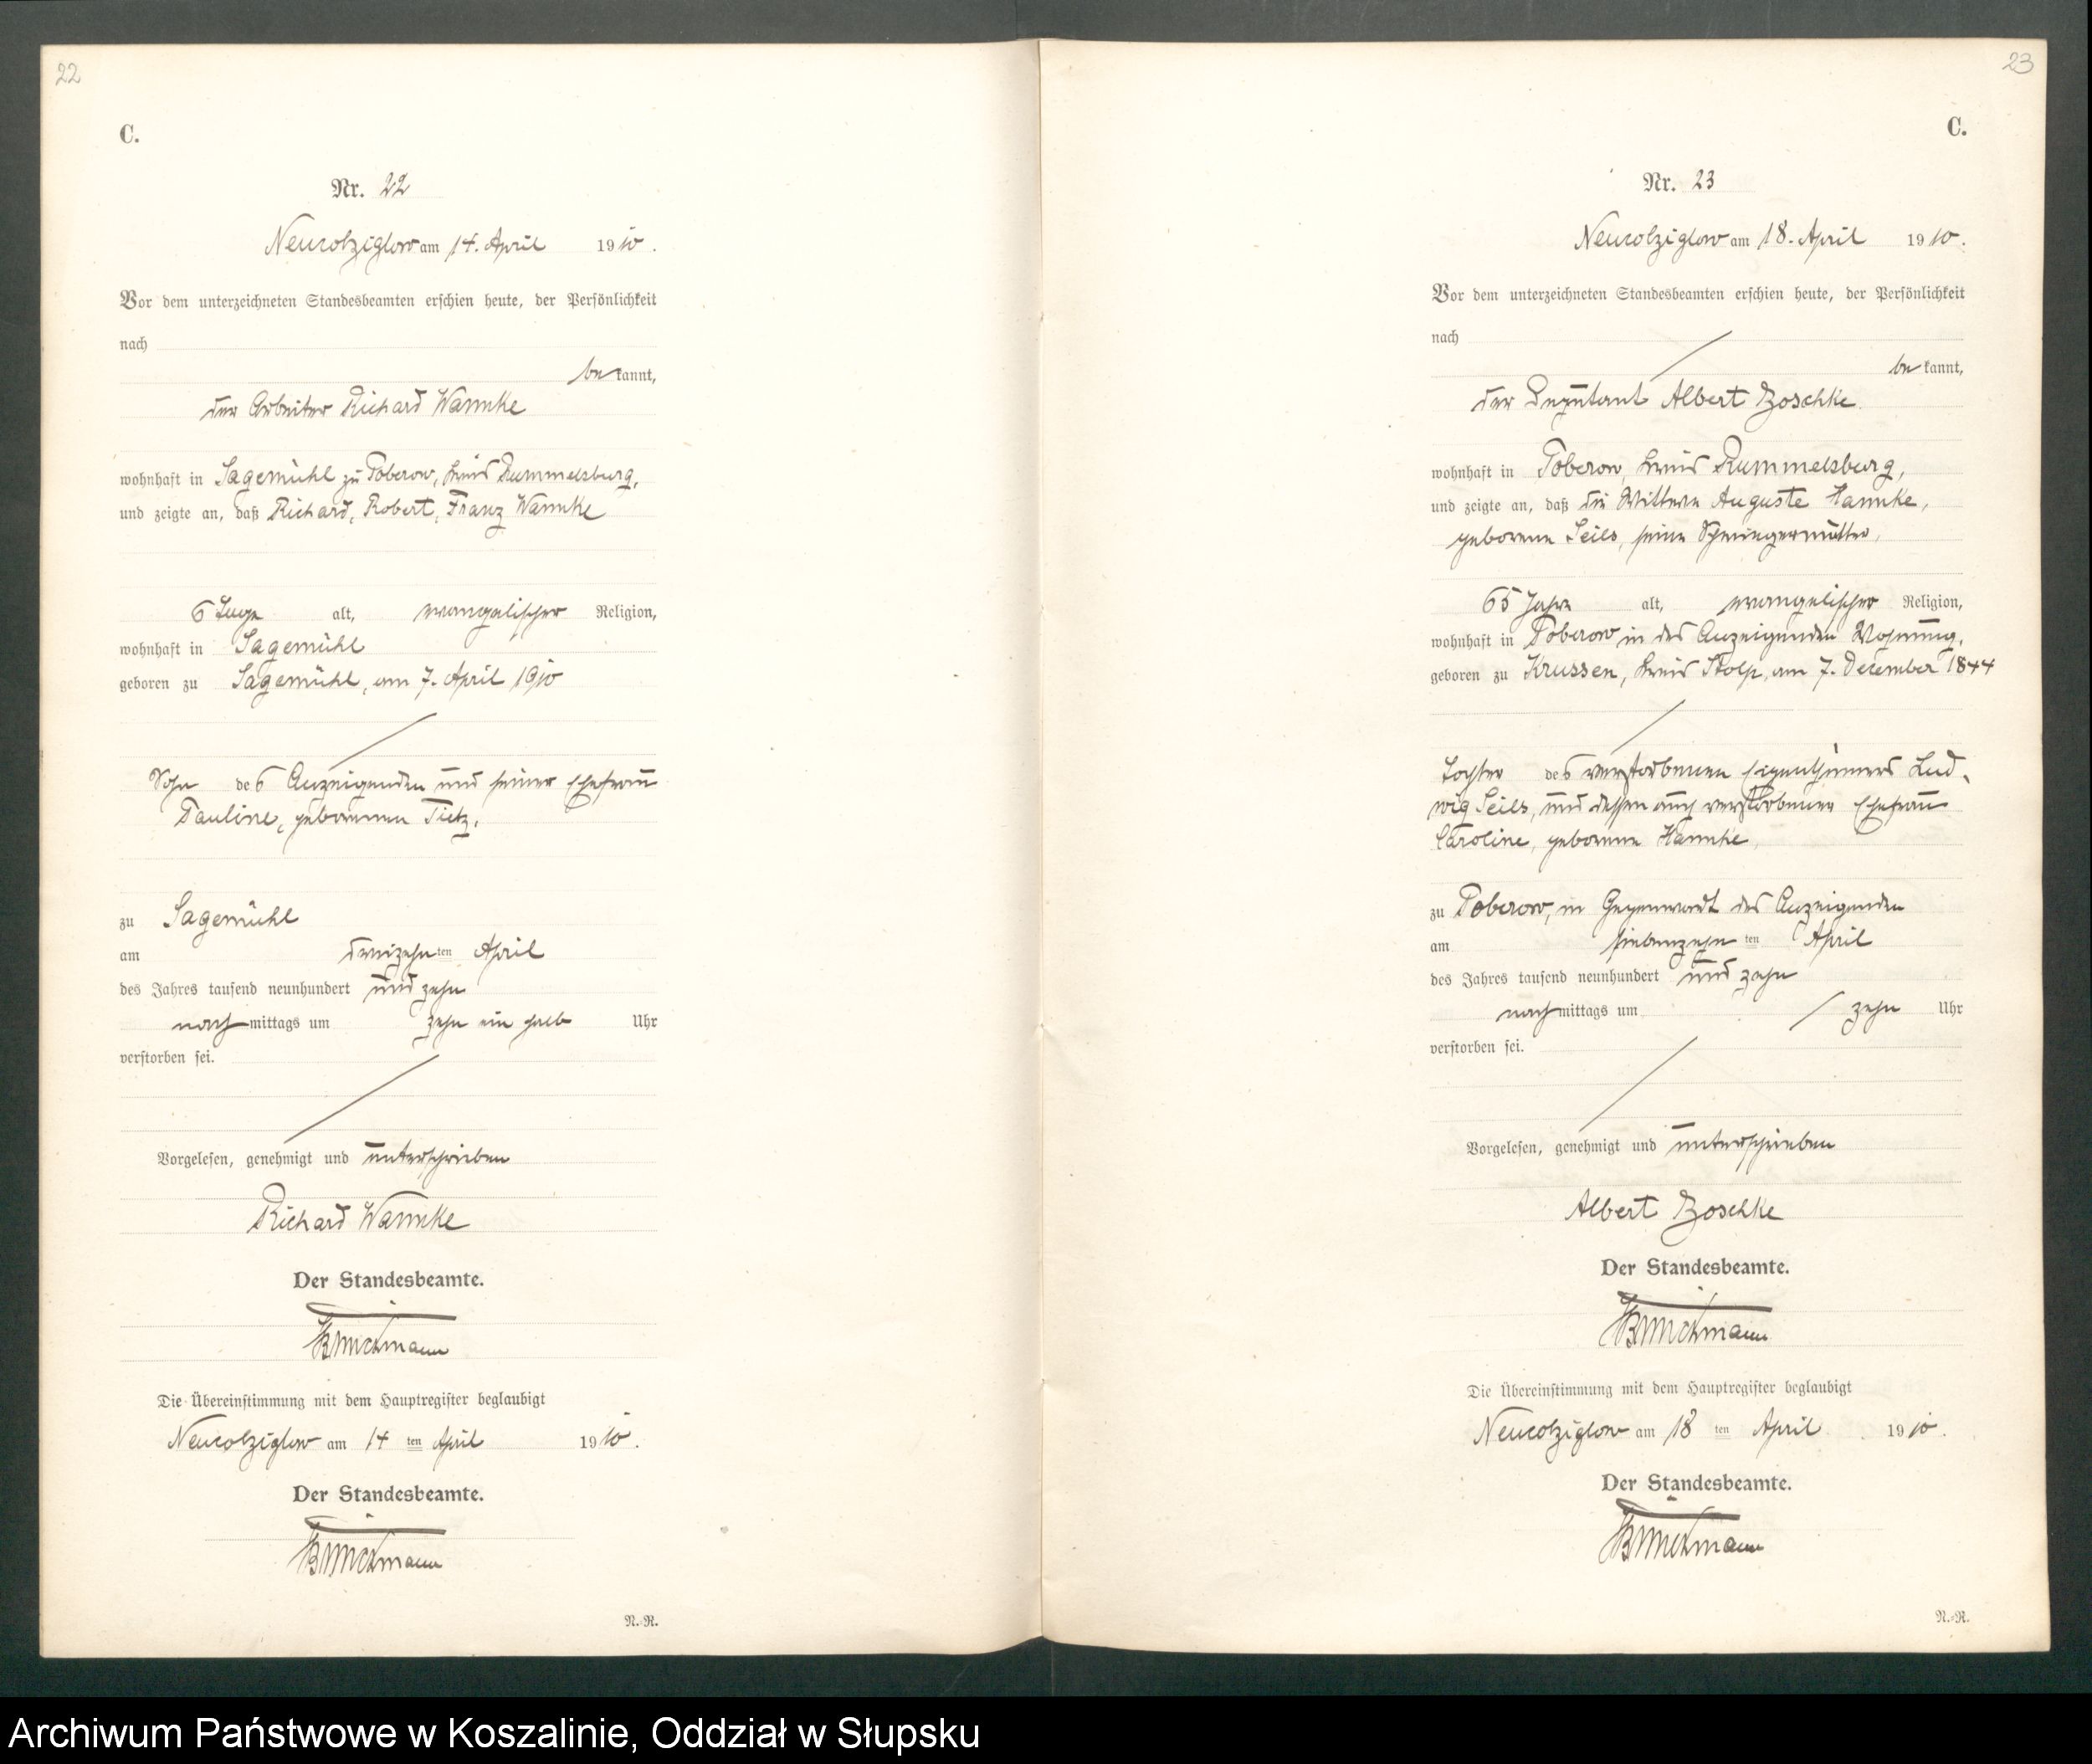 22
C.
Nr. 22
Neucolziglow am 14. April 1910.
Vor dem unterzeichneten Standesbeamten erschien heute, der Persönlichkeit
nach
bekannt,
der Arbeiter Richard Wannke
wohnhaft in Sagemühl zu Poberow, Kreis Rummelsburg,
und zeigte an, daß Richard, Robert, Franz Wannke
6 Tage alt, evangelischer Religion,
wohnhaft in Sagemühl
geboren zu Sagemühl, am 7. April 1910
Sohn des Anzeigenden und seiner Ehefrau
Pauline, geborenen Tietz.
zu Sagemühl
am dreizehnten April
des Jahres tausend neunhundert und zehn
nachmittags um zehn ein halb Uhr
verstorben sei.
Vorgelesen, genehmigt und unterschrieben
Richard Wannke
Der Standesbeamte.
Die Übereinstimmung mit dem Hauptregister beglaubigt
Neucolziglow am 14 ten April 1910.
Der Standesbeamte.
N.-R.
23
C.
Nr. 23
Neucolziglow am 18. April 1910.
Vor dem unterzeichneten Standesbeamten erschien heute, der Persönlichkeit
nach
bekannt,
der Deputant Albert Zoschke
wohnhaft in Poberow, Kreis Rummelsburg,
und zeigte an, daß die Wittwe Auguste Hannke,
geborene Seils, seine Schwiegermutter,
65 Jahre alt, evangelischer Religion,
wohnhaft in Poberow in des Anzeigenden Wohnung,
geboren zu Krussen, Kreis Stolp, am 7. December 1844
Tochter des verstorbenen Eigenthümers Lud-
wig Seils, und dessen auch verstorbener Ehefrau
Caroline, geborene Hannke,
zu Poberow, in Gegenwart des Anzeigenden
am siebenzehnten April
des Jahres tausend neunhundert und zehn
nachmittags um zehn Uhr
verstorben sei.
Vorgelesen, genehmigt und unterschrieben
Albert Zoschke
Der Standesbeamte.
Die Übereinstimmung mit dem Hauptregister beglaubigt
Neucolziglow am 18 ten April 1910.
Der Standesbeamte.
N.-R.
Archiwum Państwowe w Koszalinie, Oddział w Słupsku